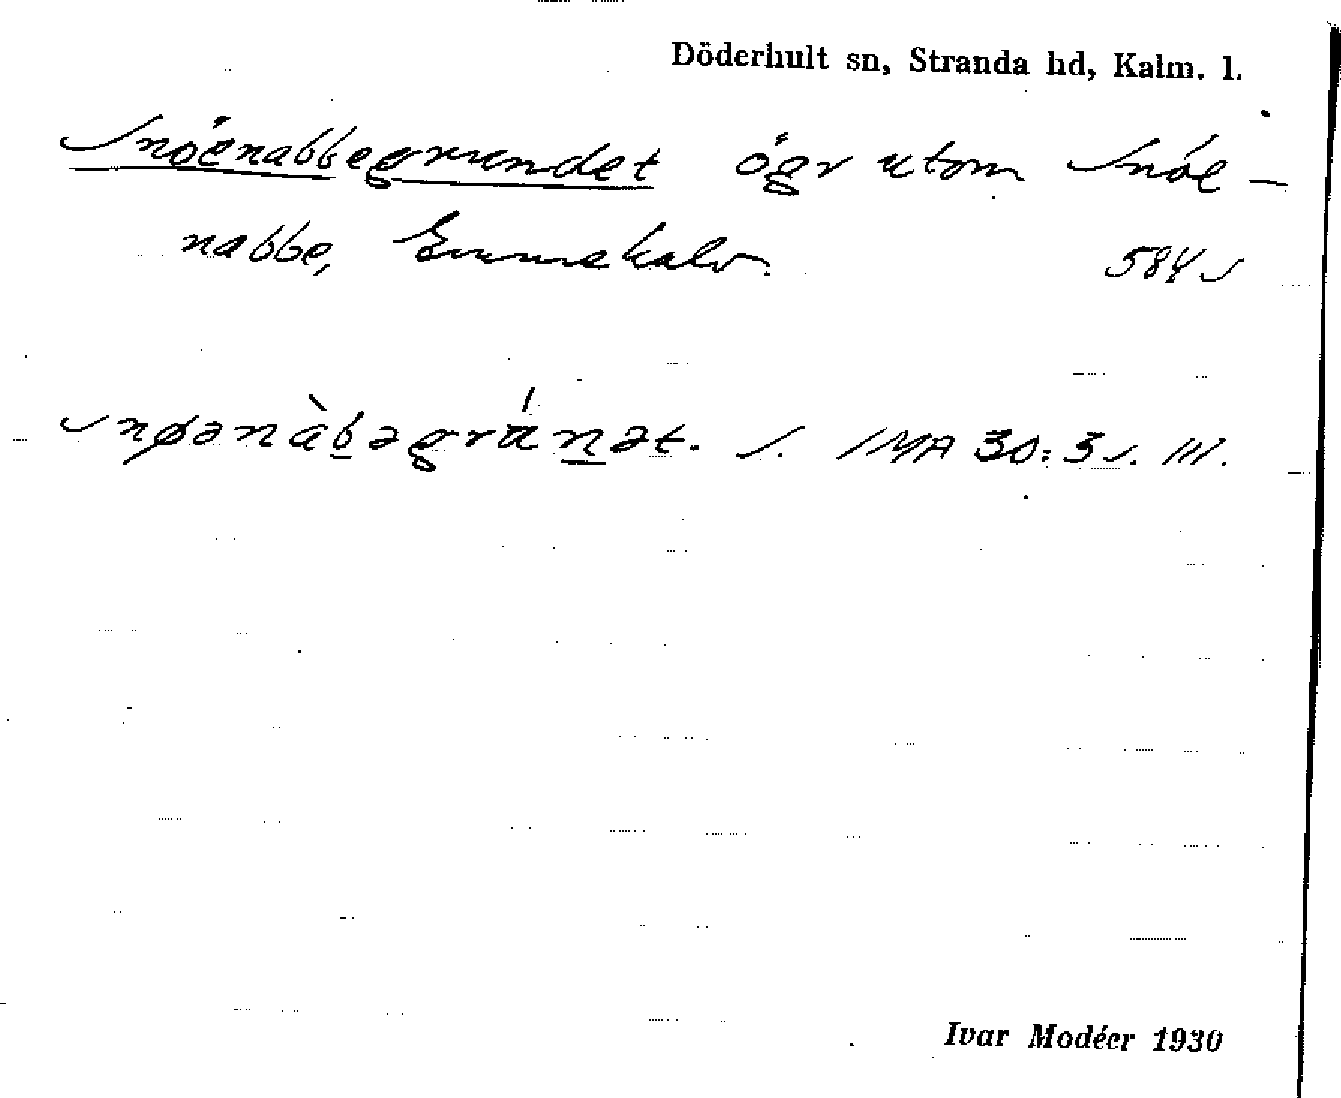 Döderhult sn, Stranda hd, Kalm. l.
Snöenabbegrundet ögr utom Snöe-
nabbe, Emmekalv. 584 s
snøənàbəgránət. S. IMA 30:3 s. 111.
Ivar Modéer 1930